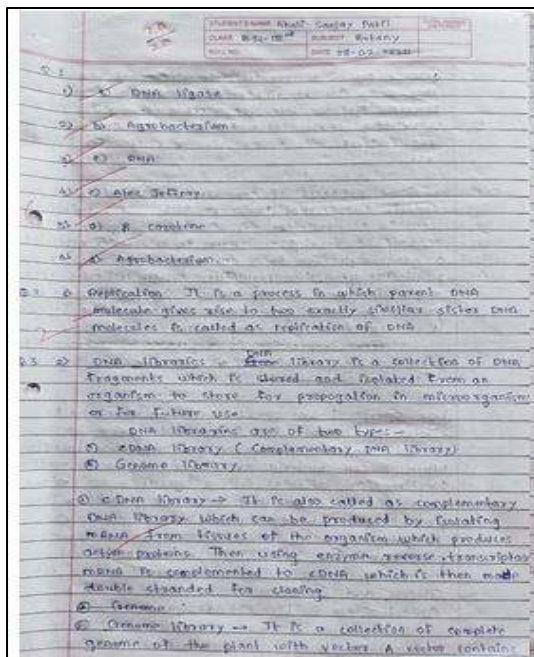 STUDENT'S NAME Khati Sanjay Patil
CLASS B.Sc-IIIrd SUBJECT Botany
ROLL NO. DATE
Q.1
1) DNA ligase
2) b) Agrobacterium
3) c) DNA
4) c) Alec Jeffrey
5) a) β carotene
6) a) Agrobacterium.
Replication - It is a process in which parent DNA
molecule gives rise to two exactly similar sister DNA
molecules is called as replication of DNA
Q.3 2) DNA libraries - DNA library is a collection of DNA
fragments which is stored and isolated from an
organism to store for propogation in microorganism
or for future use
DNA libraries are of two types:-
cDNA library (Complementary DNA library)
Genome library
cDNA library → It is also called as complementary
DNA library which can be produced by isolating
mRNA from tissues of the organism which produces
active proteins. Then using enzyme reverse transcriptor
mRNA is complemented to cDNA which is then made
double stranded for cloning
Genome
Genome library → It is a collection of complete
genome of the plant with vector. A vector contains